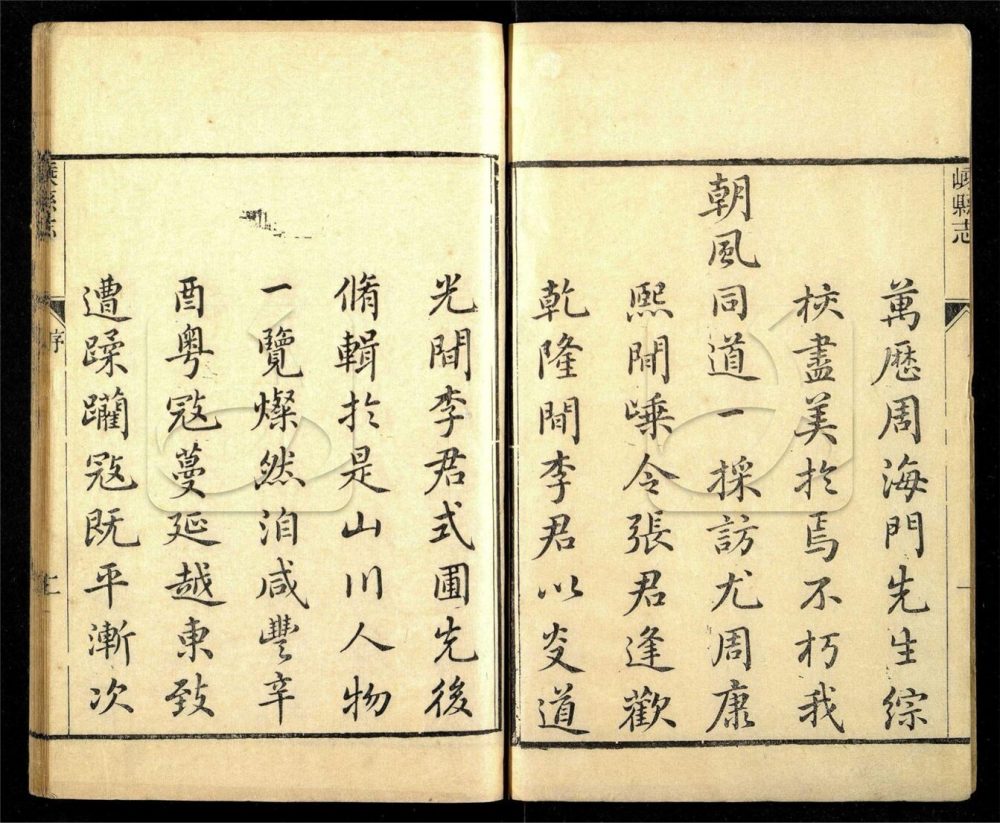 嵊縣志
萬歷周海門先生綜
挍盡美於焉不朽我
朝風同道一採訪尤周康
熙間嵊令張君逢歡
乾隆間李君以炎道
光間李君式圃先後
脩輯於是山川人物
一覽燦然洎咸豐辛
酉粤冦蔓延越東致
遭蹂躪冦既平漸次
嵊縣志
序